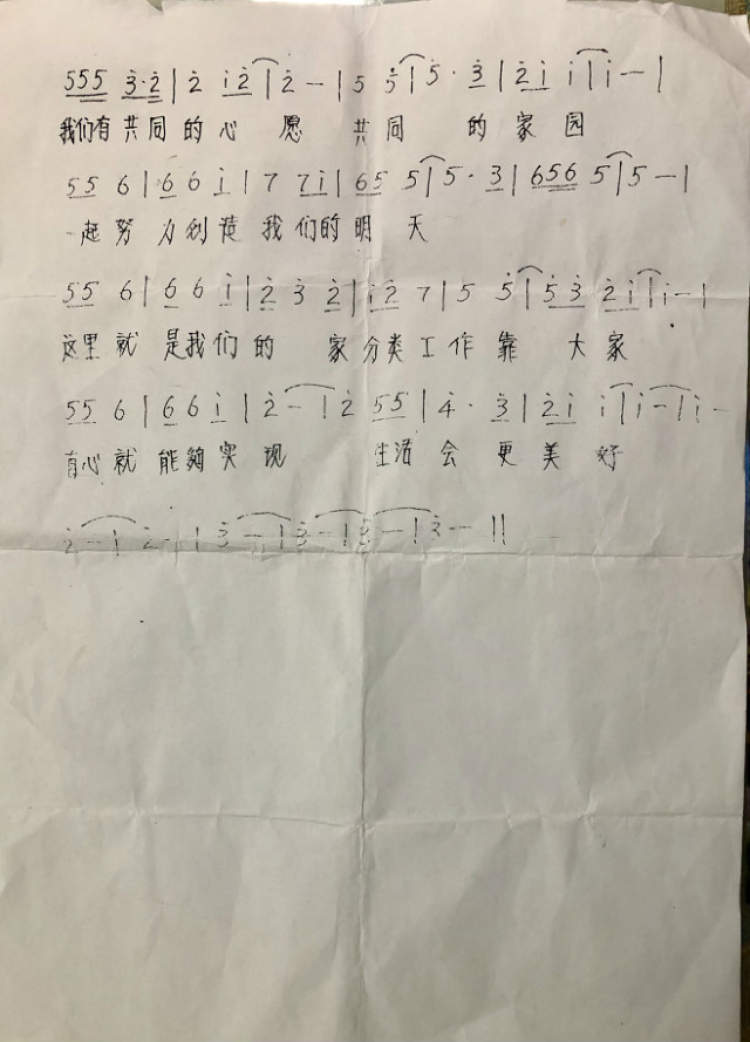 555 3̇·2̇ | 2̇ 1̇2̇ | 2̇ — | 5 5̇ | 5̇· 3̇ | 2̇1̇ 1̇ | 1̇ — |
我们有共同的心愿 共同 的家园
55 6 | 6 6 1̇ | 7 71̇ | 65 5 | 5· 3 | 656 5 | 5 — |
一起努力创造我们的明天
55 6 | 6 6 1̇ | 2̇ 3̇ 2̇ | 1̇2̇ 7 | 5 5̇ | 5̇3̇ 2̇1̇ | 1̇ — |
这里就是我们的 家分类工作靠 大家
55 6 | 66 1̇ | 2̇ — | 2̇ 55 | 4̇· 3̇ | 2̇1̇ 1̇ | 1̇ — | 1̇ —
有心就能够实现 生活会更美好
2̇ — | 2̇ — | 3̇ — | 3̇ — | 3̇ — | 3̇ — ||